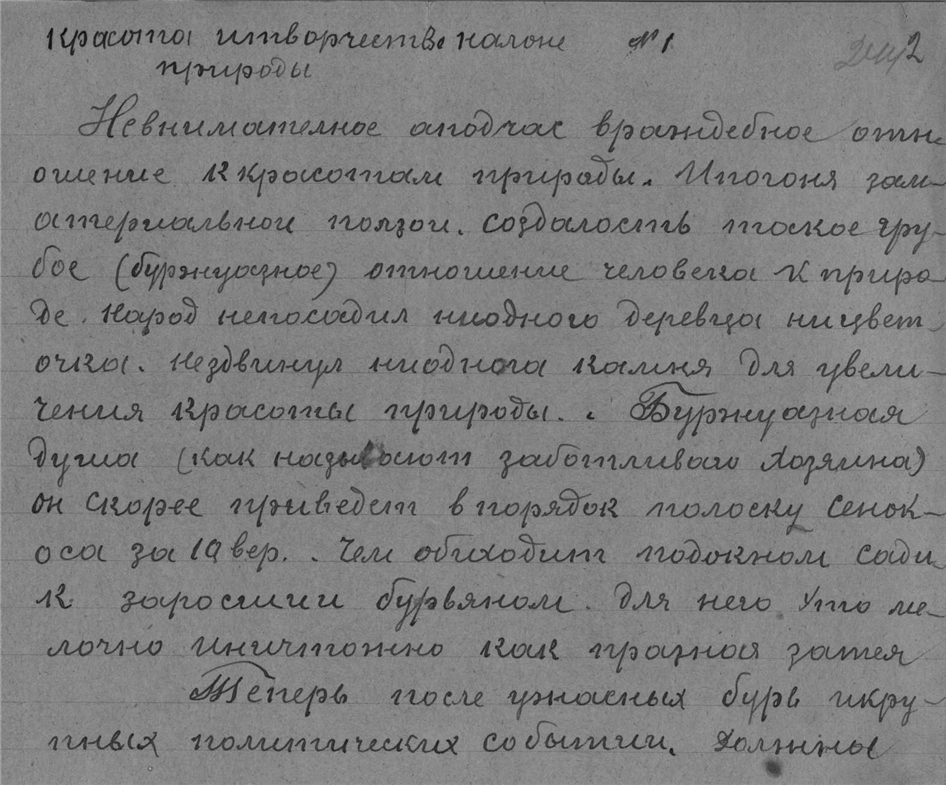 Красота итворчество налоне № 1
природы
Невнимателное аподчас враждебное отн-
ошение к красотам природы. Ипогоня зам-
атериальнои ползои. создалость такое гру-
бое (буржуазное) отношение человека к приро-
де. народ непосадил ниодного деревца ницвет-
очка. нездвинул ниоднога камня для увели-
чения красоты природы. . Буржуазная
душа (как называют заботливаго хозяина)
он скорее приведет впорядок полоску сенок-
оса за 10 вер. . Чем обиходит подокном сади-
к заросшии бурьяном. Для него это ме-
лочно иничтожно как празная затея
Теперь после ужасных бурь икру-
пных политических событии. должны